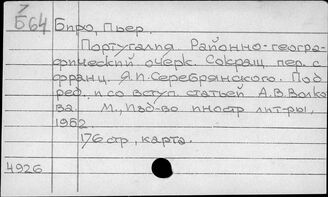 7
Б64 Биро, Пьер.
Португалия Районно-геогра-
фический очерк. Сокращ. пер. с
франц. Я.П.Серебрянского. Под
ред. и со вступ. статьей А.В.Волко
ва. М., Изд-во иностр лит-ры,
1952
176 стр, карта.
4926